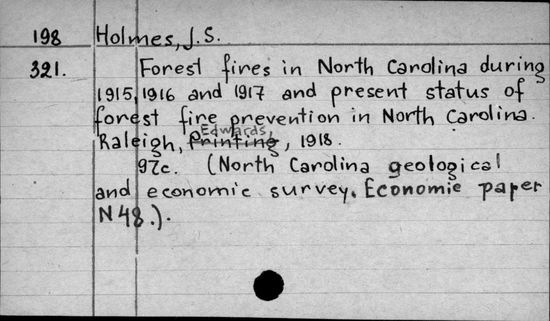 198 Holmes, J.S.
321. Forest fires in North Carolina during
1915, 1916 and 1917 and present status of
forest fire prevention in North Carolina.
Edwards,
Raleigh, Printing, 1918.
97c. (North Carolina geological
and economic survey. Economic paper
N 48.).